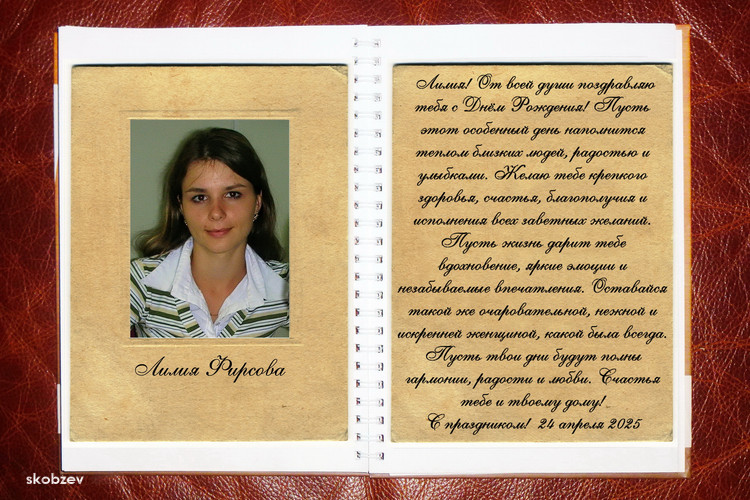 Лилия Фирсова
Лилия! От всей души поздравляю
тебя с Днём Рождения! Пусть
этот особенный день наполнится
теплом близких людей, радостью и
улыбками. Желаю тебе крепкого
здоровья, счастья, благополучия и
исполнения всех заветных желаний.
Пусть жизнь дарит тебе
вдохновение, яркие эмоции и
незабываемые впечатления. Оставайся
такой же очаровательной, нежной и
искренней женщиной, какой была всегда.
Пусть твои дни будут полны
гармонии, радости и любви. Счастья
тебе и твоему дому!
С праздником! 24 апреля 2025
skobzev